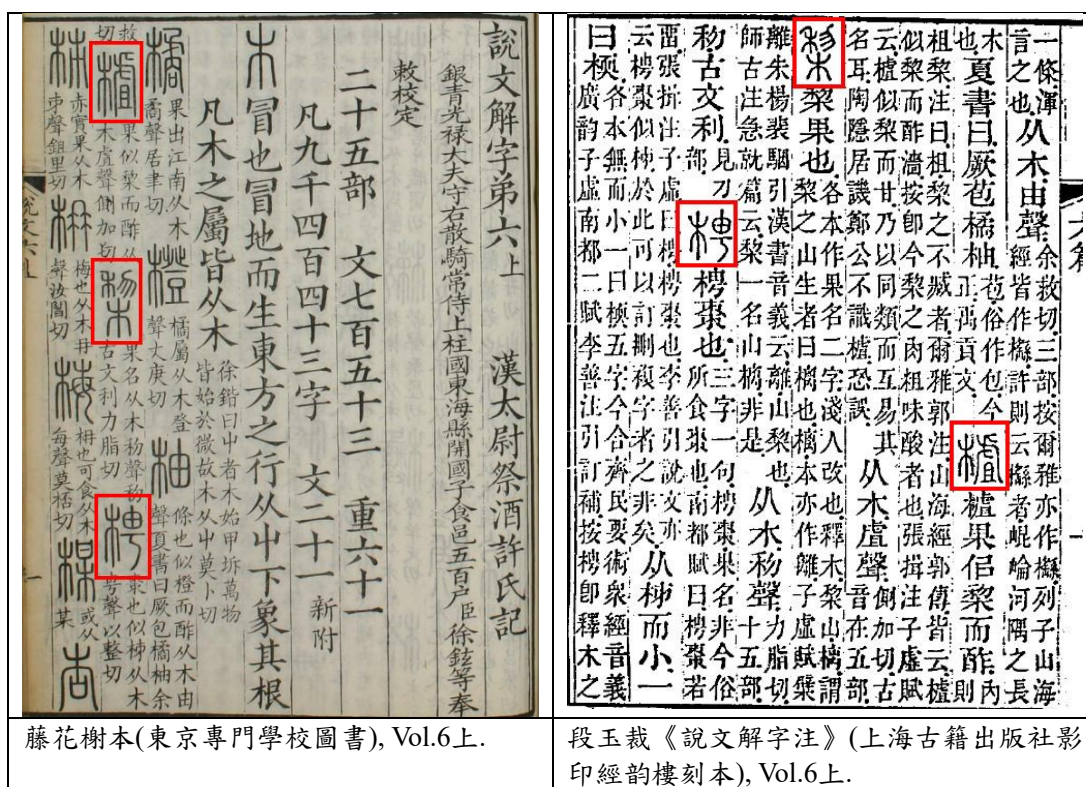 說文解字弟六上　漢太尉祭酒許氏記
銀青光禄大夫守右散騎常侍上柱國東海縣開國子食邑五百户臣徐鉉等奉
敕校定
二十五部　文七百五十三　重六十一
凡九千四百四十三字　文二十一新附
木冒也冒地而生東方之行从屮下象其根
凡木之屬皆从木徐鍇曰屮者木始甲拆萬物皆始於微故木从屮莫卜切
橘果出江南从木矞聲居聿切橙橘屬从木登聲丈庚切柚條也似橙而酢从木由聲夏書曰厥包橘柚余
救切樝果似棃而酢从木虘聲側加切棃果名从木𥝢聲𥝢古文利力脂切梬棗也似柹从木甹聲以整切
柹赤實果从木𠂔聲鉏里切枏梅也从木冄聲汝閻切梅枏也可食从木每聲莫桮切楳或从某杏
藤花榭本(東京專門學校圖書), Vol.6上.
一條渾言之也从木由聲余救切三部按爾雅亦作櫾列子山海經皆作櫾許則云櫾者崐崘河隅之長
木也夏書曰厥苞橘柚苞俗作包今正禹貢文樝樝果佀棃而酢内則
柤棃注曰柤棃之不臧者爾雅郭注山海經郭傳皆云樝似棃而酢濇按卽今棃之肉粗味酸者也張揖注子虛賦
云樝似棃而甘乃以同類而互易其名耳陶隱居譏鄭公不識樝恐誤从木虘聲側加切古音在五部
棃棃果也各本作果名二字淺人改也釋木棃山樆謂棃之山生者曰樆也樆本亦作離子虛賦檗
離朱楊裴駰引漢書音義云離山棃也師古注急就篇云棃一名山樆非是从木𥝢聲力脂切十五部
𥝢古文利見刀部梬梬棗也三字一句梬棗果名非今俗所食棗也南都賦曰梬棗若
畱張揖注子虛曰梬梬棗也李善引說文亦云梬棗似柹於此可以訂刪複字者之非矣从柹而小一
曰㮕各本無而小一曰㮕五字今合齊民要術衆經音義廣韵子虛南都二賦李善注引訂補按梬卽釋木之
段玉裁《說文解字注》(上海古籍出版社影
印經韵樓刻本), Vol.6上.